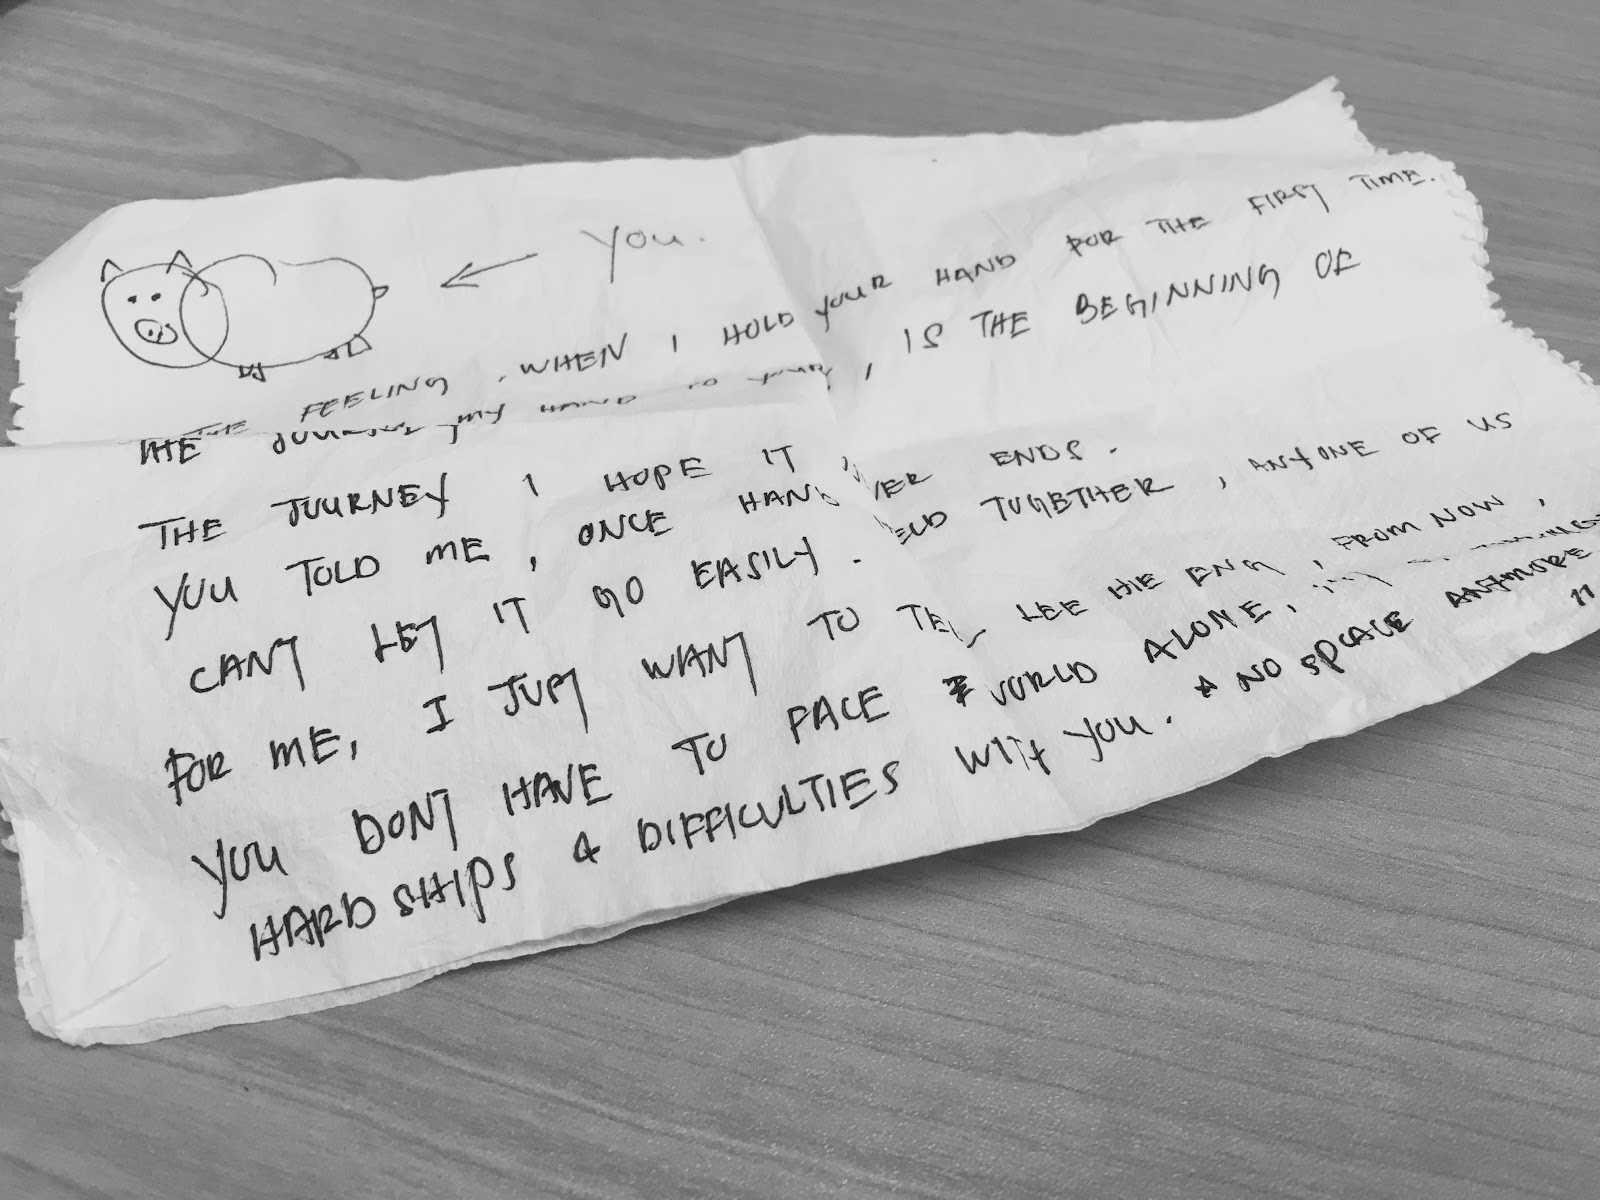 You.
THE FEELING, WHEN I HOLD YOUR HAND FOR THE FIRST TIME.
THE MY HAND TO YOUR, IS THE BEGINNING OF
THE JOURNEY I HOPE IT ENDS.
YOU TOLD ME, ONCE TOGETHER, ANYONE OF US
CANT LET IT GO EASILY.
FOR ME, I JUST WANT TO TELL LEE HIE ENG, FROM NOW,
YOU DONT HAVE TO FACE WORLD ALONE.
HARDSHIPS & DIFFICULTIES WITH YOU. * NO SPCACE ANYMORE